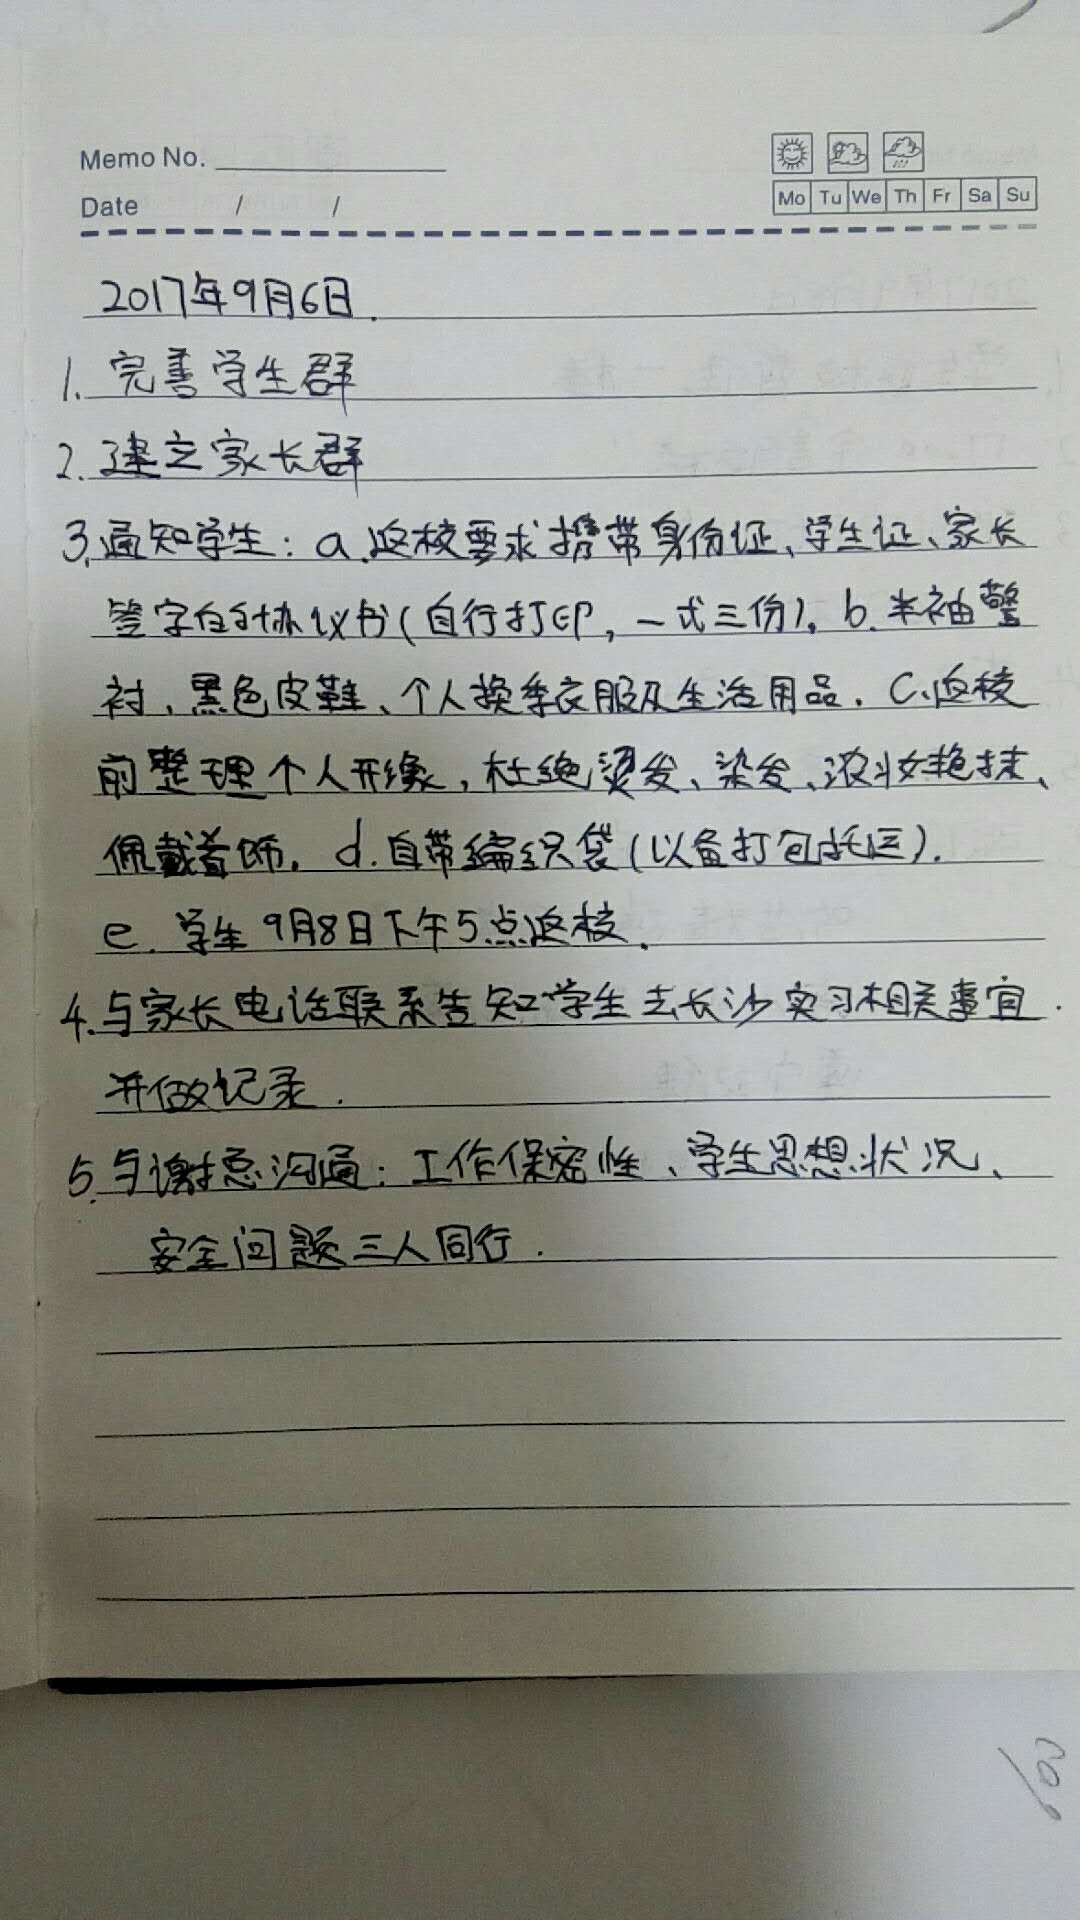 Memo No.
Date / /
Mo Tu We Th Fr Sa Su
2017年9月6日.
1. 完善学生群
2. 建立家长群
3. 通知学生: a.返校要求携带身份证、学生证、家长
签字的协议书(自行打印,一式三份)。b.半袖警
衬、黑色皮鞋、个人换季衣服及生活用品. C.返校
前整理个人形象,杜绝烫发、染发、浓妆艳抹、
佩戴首饰。d.自带编织袋(以备打包托运).
e. 学生9月8日下午5点返校.
4.与家长电话联系告知学生去长沙实习相关事宜.
并做记录.
5.与谢总沟通:工作保密性、学生思想状况、
安全问题三人同行.